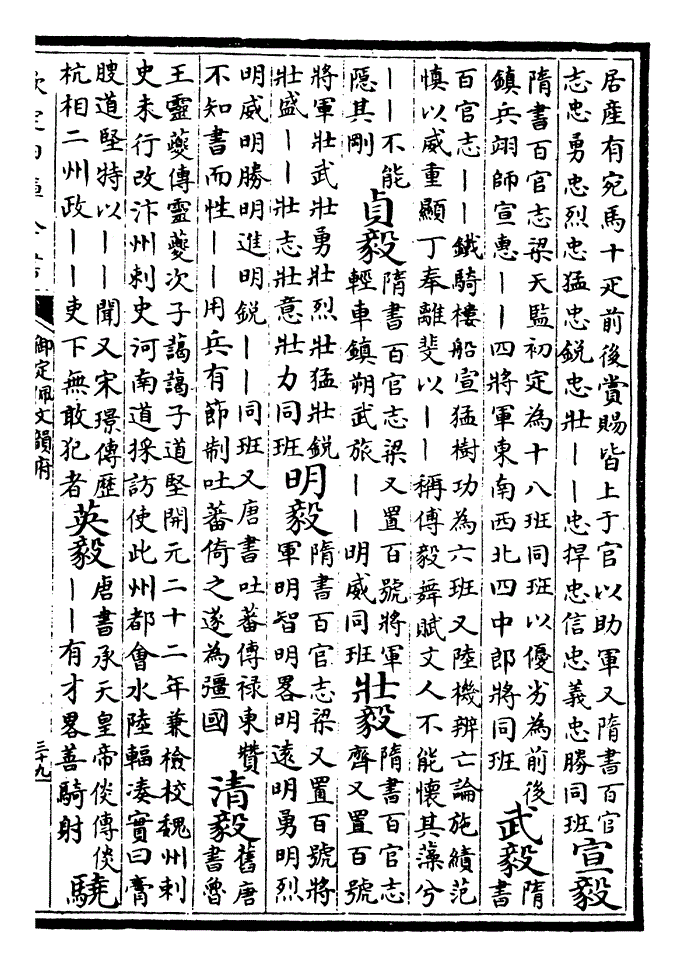 居產有宛馬十疋前後賞賜皆上于官以助軍又隋書百官
志忠勇忠烈忠猛忠銳忠壯——忠捍忠信忠義忠勝同班
宣毅
隋書百官志梁天監初定為十八班同班以優劣為前後
鎮兵翊師宣惠——四將軍東南西北四中郎將同班
武毅
隋書
百官志——鐵騎樓船宣猛樹功為六班又陸機辨亡論施績范
慎以威重顯丁奉離斐以——稱傅毅舞賦文人不能懷其藻兮
——不能
隱其剛
貞毅
隋書百官志梁又置百號將軍
輕車鎮朔武旅——明威同班
壯毅
隋書百官志
齊又置百號
將軍壯武壯勇壯烈壯猛壯銳
壯盛——壯志壯意壯力同班
明毅
隋書百官志梁又置百號將
軍明智明畧明遠明勇明烈
明威明勝明進明銳——同班又唐書吐蕃傳禄東贊
不知書而性——用兵有節制吐蕃倚之遂為彊國
清毅
舊唐
書魯
王靈夔傳靈夔次子藹藹子道堅開元二十二年兼檢校魏州刺
史未行改汴州刺史河南道採訪使此州都會水陸輻湊實曰膏
腴道堅特以——聞又宋璟傳歷
杭相二州政——吏下無敢犯者
英毅
唐書承天皇帝倓傳倓
——有才畧善騎射
驍
御定佩文韻府
三十九